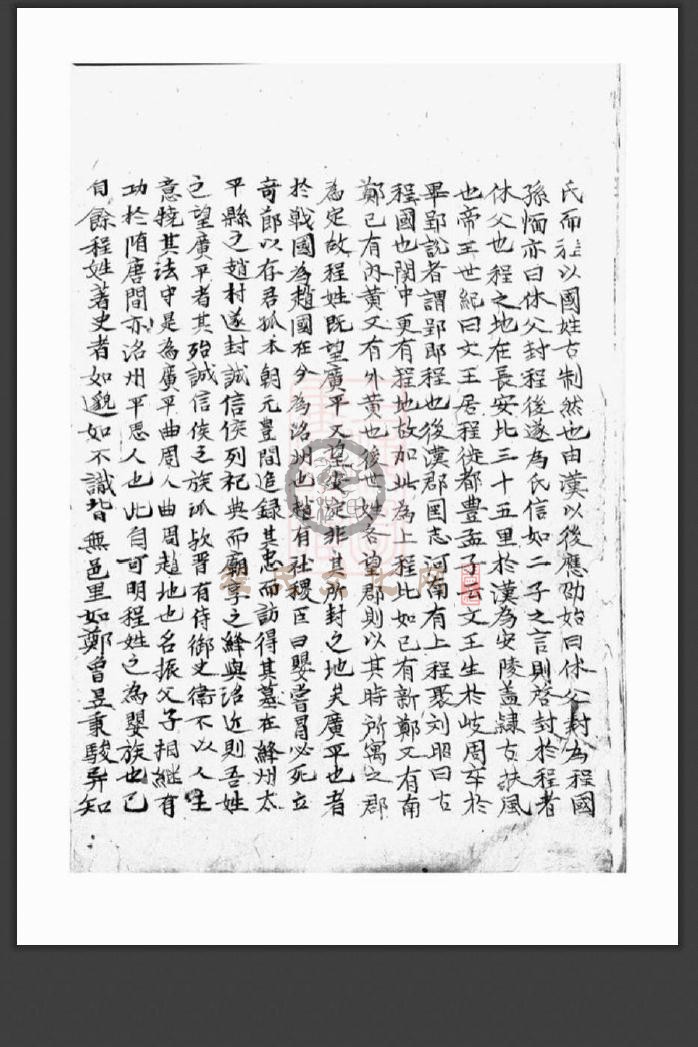 氏而往以國姓古制然也由漢以後應劭始曰休父封為程國
孫愐亦曰休父封程後遂為氏信如二子之言則啓封於程者
休父也程之地在長安北三十五里於漢為安陵盖隷古扶風
也帝王世紀曰文王居程徙都豊孟子云文王生於岐周卒於
畢郢說者謂郢即程也後漢郡囯志河南有上程聚刘昭曰古
程國也関中更有程地故加此為上程此如已有新鄭又有南
鄭已有內黄又有外黄也後世姓各望郡則以其時所寓之郡
為定故程姓既望廣平又望安定非其所封之地矣廣平也者
於戰國為趙國在今為洺州也趙有社稷臣曰嬰嘗冒必死立
奇節以存君孤本朝元豊間追録其忠而訪得其墓在絳州太
平縣之趙村遂封誠信侯列祀典而廟享之絳與洺近則吾姓
之望廣平者其殆誠信侯之族孤欤晋有侍御史衛不以人主
意撓其法守是為廣平曲周人曲周趙地也名振父子相継有
功於隋唐間亦洺州平恩人也此自可明程姓之為嬰族也已
自餘程姓著史者如邈如不識皆無邑里如鄭曾昱秉駿异知